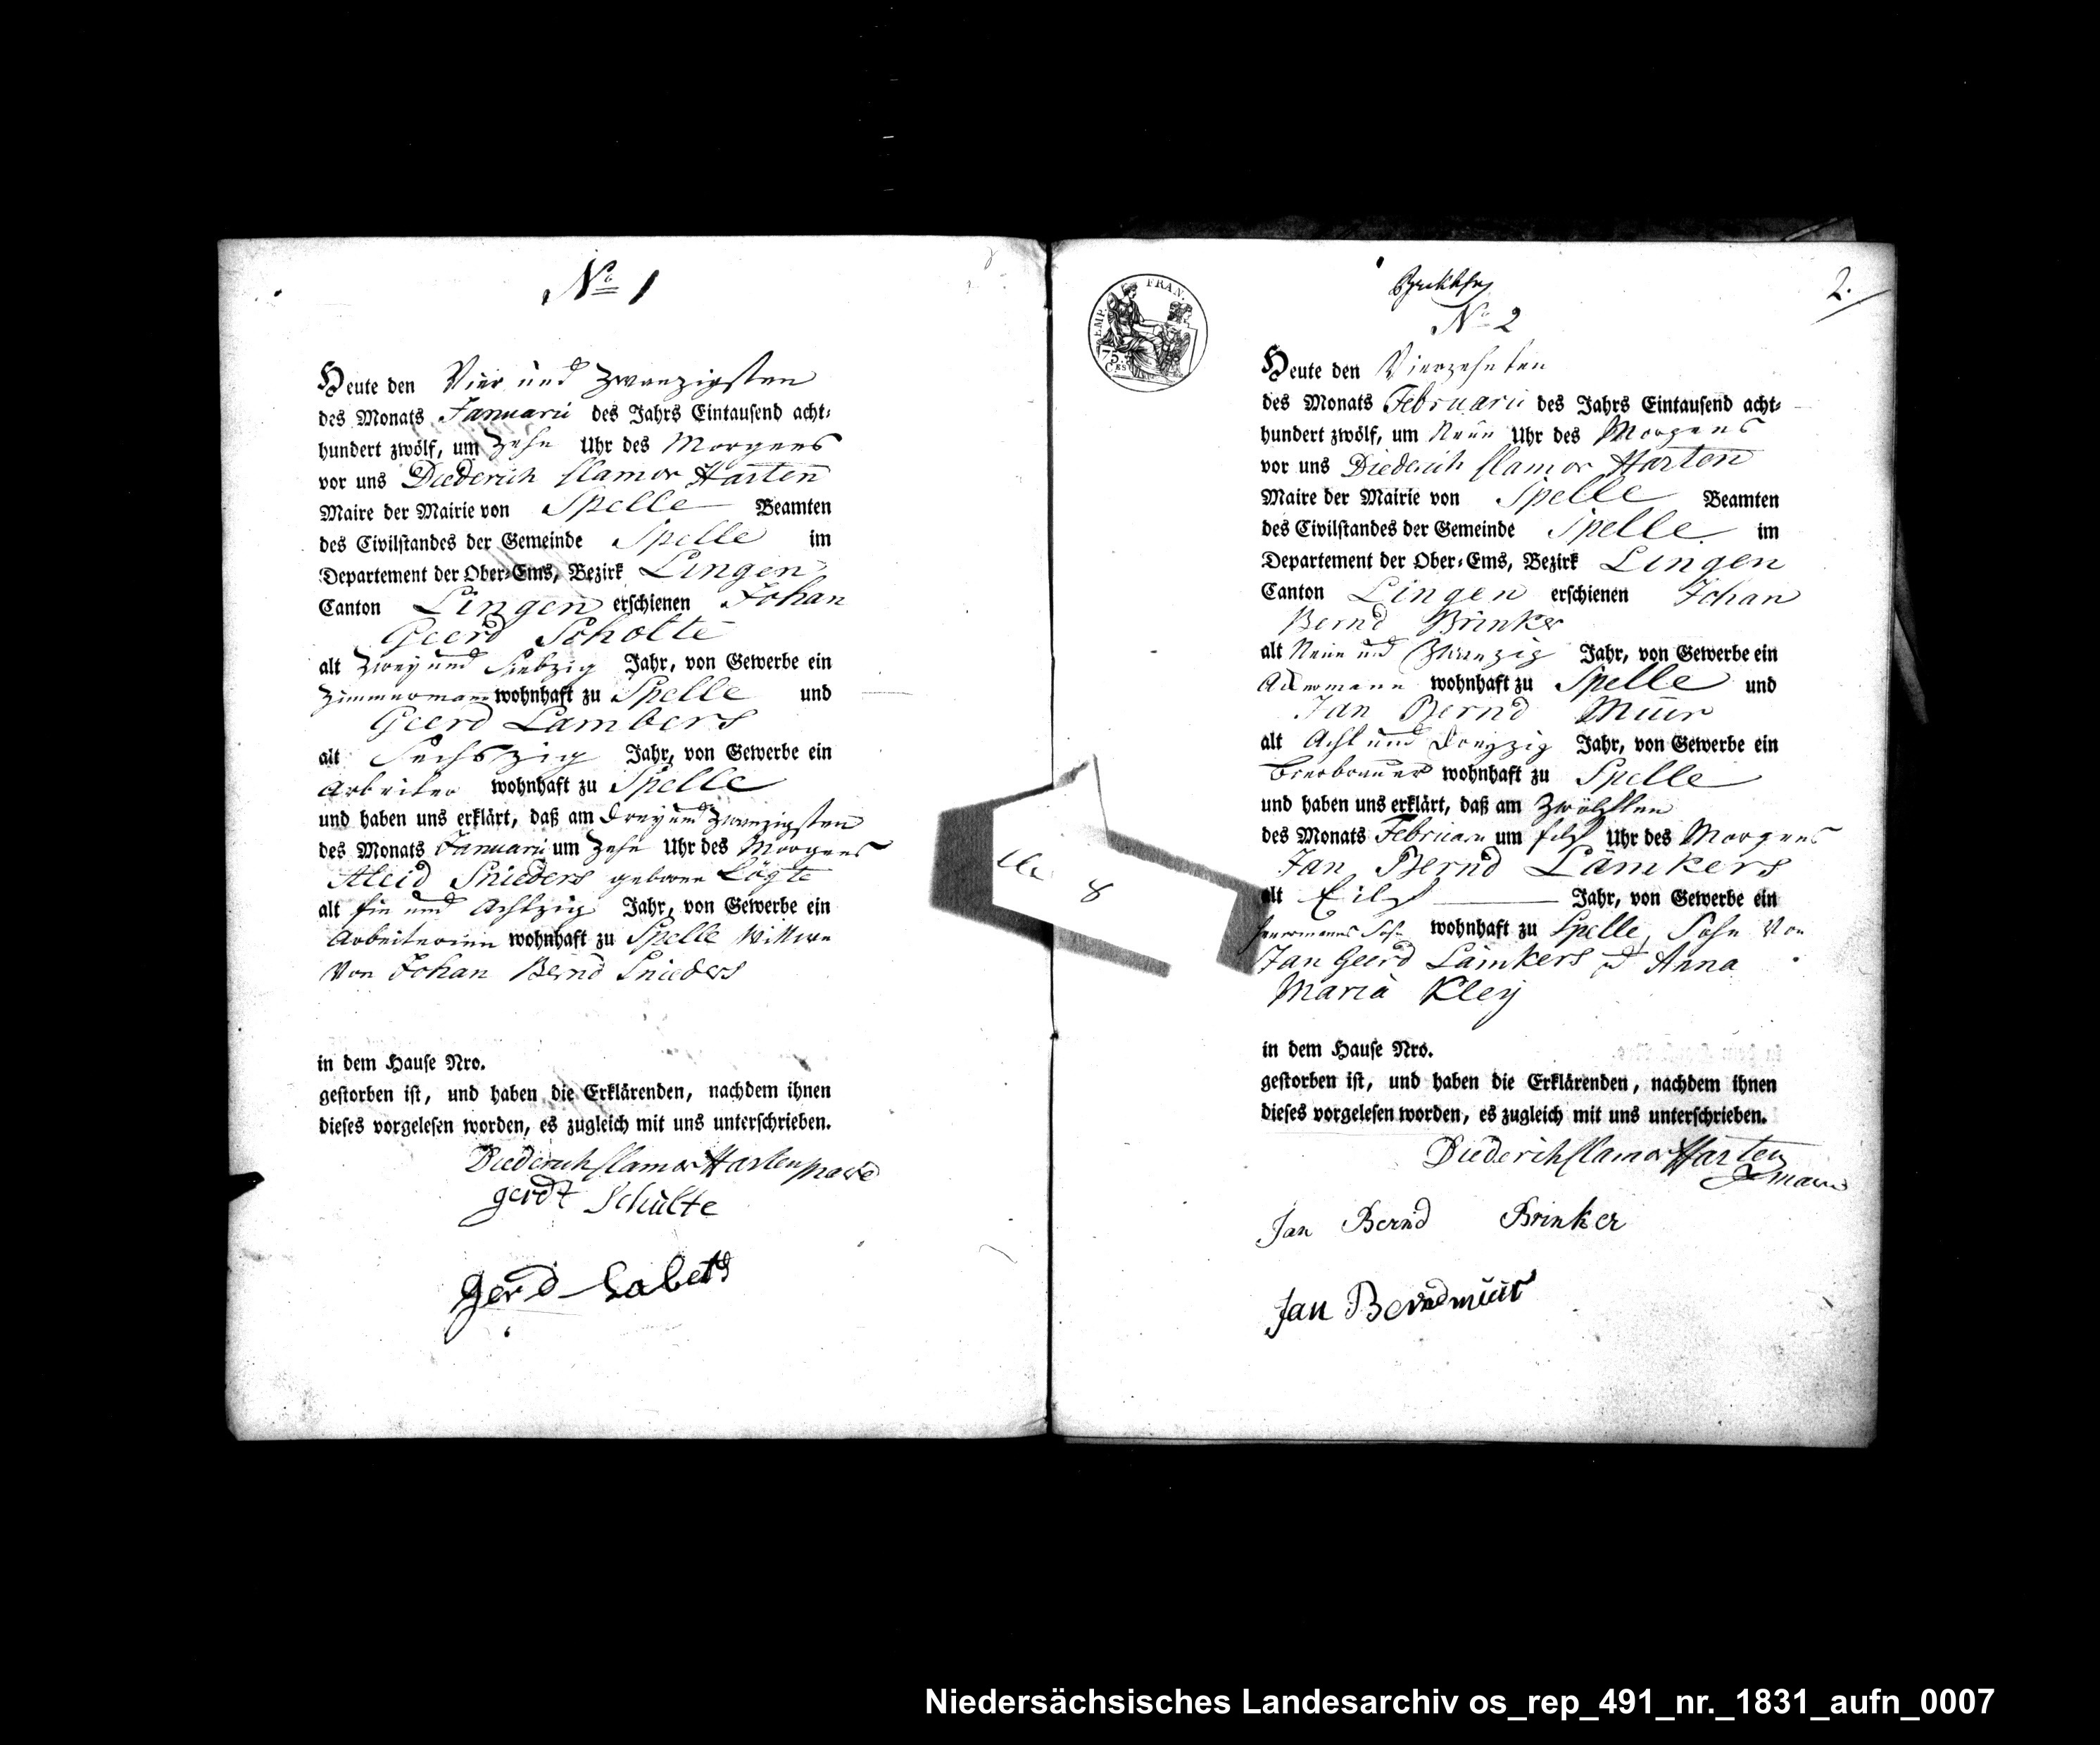 No 1
Heute den Vier und zwanzigsten
des Monats Januarii des Jahrs Eintausend acht⸗
hundert zwölf, um Zehn Uhr des Morgens
vor uns Diederich Clamor Harten
Maire der Mairie von Spelle Beamten
des Civilstandes der Gemeinde Spelle im
Departement der Ober⸗Ems, Bezirk Lingen
Canton Lingen erschienen Johan
Geerd Scholte
alt Zwey und Siebzig Jahr, von Gewerbe ein
Zimmermann wohnhaft zu Spelle und
Geerd Lambers
alt Sechszig Jahr, von Gewerbe ein
Arbeiter wohnhaft zu Spelle
und haben uns erklärt, daß am Drey und Zwanzigsten
des Monats Januarii um Zehn Uhr des Morgens
Aleid Snieders geboren Lögte
alt Ein und Achtzig Jahr, von Gewerbe ein
Arbeiterinn wohnhaft zu Spelle Wittwe
Von Johan Bernd Snieders
in dem Hause Nro.
gestorben ist, und haben die Erklärenden, nachdem ihnen
dieses vorgelesen worden, es zugleich mit uns unterschrieben.
Diederich Clamor Harten maire
gerdt Schulte
Gerd
8
EMP. FRAN.
75.
CES
2.
No 2
Heute den Vierzehnten
des Monats Februarii des Jahrs Eintausend acht⸗
hundert zwölf, um Neun Uhr des Morgens
vor uns Diederich Clamor Harten
Maire der Mairie von Spelle Beamten
des Civilstandes der Gemeinde Spelle im
Departement der Ober⸗Ems, Bezirk Lingen
Canton Lingen erschienen Johan
Bernd Brinker
alt Neun und Zwanzig Jahr, von Gewerbe ein
Ackermann wohnhaft zu Spelle und
Jan Bernd Müer
alt Acht und Dreyzig Jahr, von Gewerbe ein
Bierbrauer wohnhaft zu Spelle
und haben uns erklärt, daß am Zwölften
des Monats Februari um Uhr des Morgens
Jan Bernd Lämkers
alt Eilf Jahr, von Gewerbe ein
Heuermanns Sohn wohnhaft zu Spelle, Sohn Von
Jan Geerd Lämkers und Anna
Maria Kley
in dem Hause Nro.
gestorben ist, und haben die Erklärenden, nachdem ihnen
dieses vorgelesen worden, es zugleich mit uns unterschrieben.
Diederich Clamor Harten
maire
Jan Bernd Brinker
Jan Bernd müer
Niedersächsisches Landesarchiv os_rep_491_nr._1831_aufn_0007